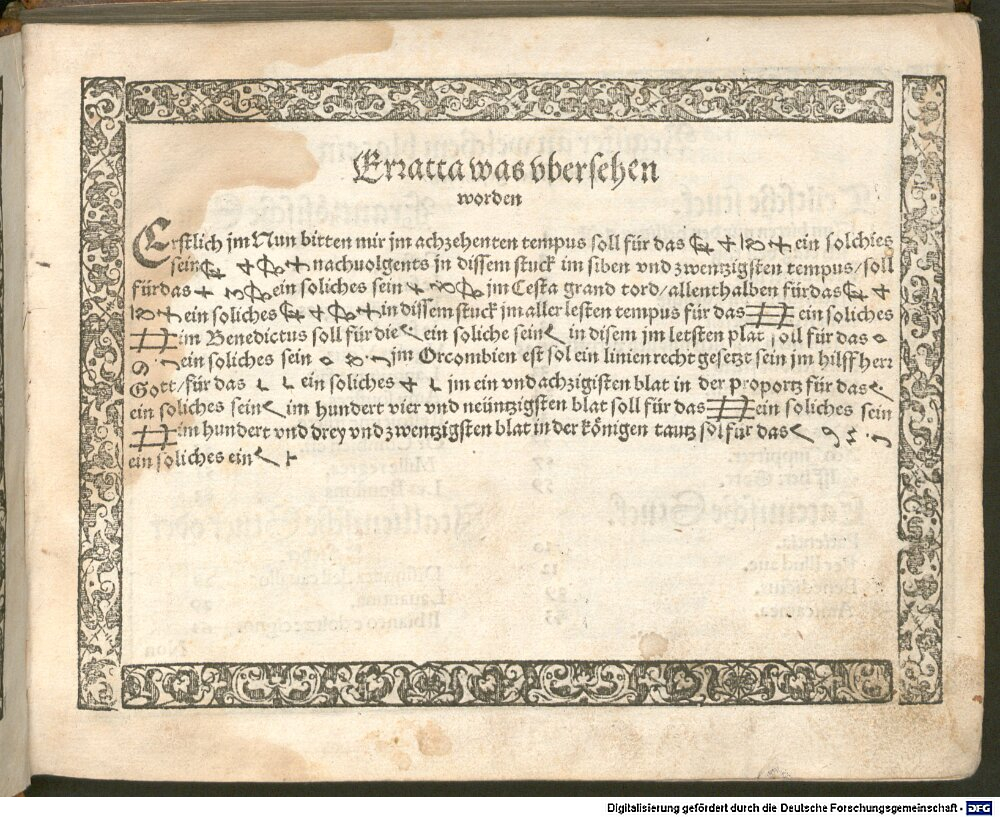 Erratta was vbersehen
worden
Erstlich jm Nun bitten mir jm achzehenten tempus soll für das ein solchies
sein nachuolgents jn dissem stuck im siben vnd zwentzigsten tempus/soll
für das ein soliches sein jm Cesta grand tord/allenthalben für das
ein soliches in dissem stuck jm aller lesten tempus für das ein soliches
im Benedictus soll für die ein soliche sein in disem jm letsten plat soll für das
ein soliches sein jm Orcombien est sol ein linien recht gesetzt sein jm hilff herr
Gott/für das ein soliches jm ein vnd achzigisten blat in der proportz für das
ein soliches sein im hundert vier vnd neüntzigsten blat soll für das ein soliches sein
im hundert vnd drey vnd zwentzigsten blat in der königen tantz sol für das
ein soliches ein
Digitalisierung gefördert durch die Deutsche Forschungsgemeinschaft - DFG